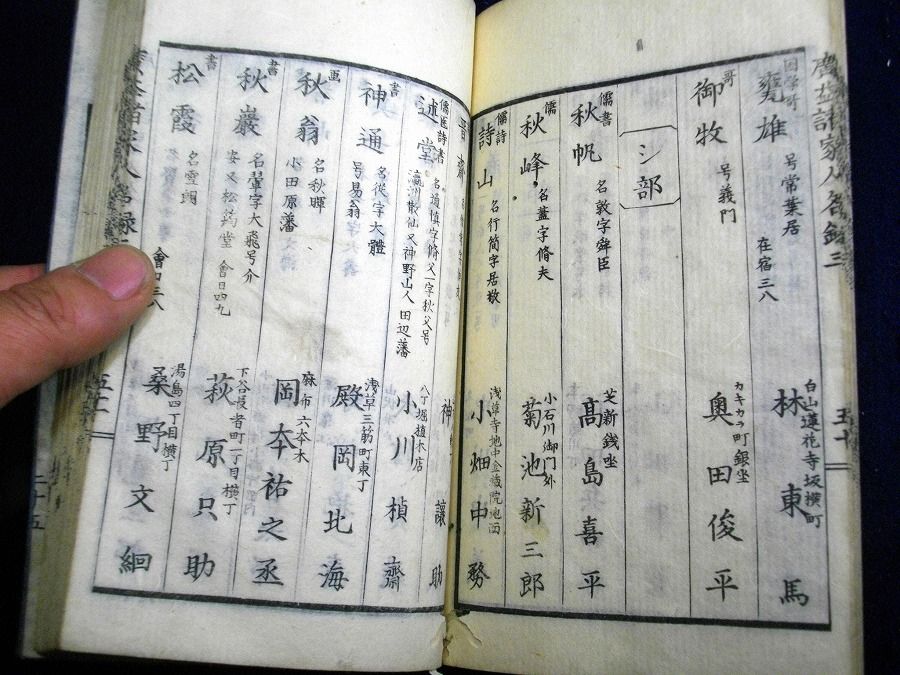 國学哥 甕雄 号常葉居 在宿三八 白山蓮花寺坂横町 林東馬
哥 御牧 号義門 カキカラ町銀坐 奥田俊平
シ部
儒書 秋帆 名敦字舜臣 芝新銭坐 高島喜平
儒 秋峰 名蓋字脩夫 小石川御門外 菊池新三郎
儒詩 詩山 名行簡字居敬 浅草寺地中金蔵院地面 小畑中務
神 讓助
儒医詩書 述堂 名道慎字脩父一字秋父号 瀛洲散仙又神野山人 田辺藩 八丁堀植木店 小川楨齋
書 神通 名從字大體 号易翁 浅草三筋町東丁 殿岡北海
画 秋翁 名秋暉 小田原藩 麻布六本木 岡本祐之丞
書 秋巌 名鞏字大飛号介 安又松筠堂 會日四九 下谷長者町一丁目横丁 萩原只助
書 松霞 名雪朗 會日三八 湯島四丁目横丁 桑野文綱